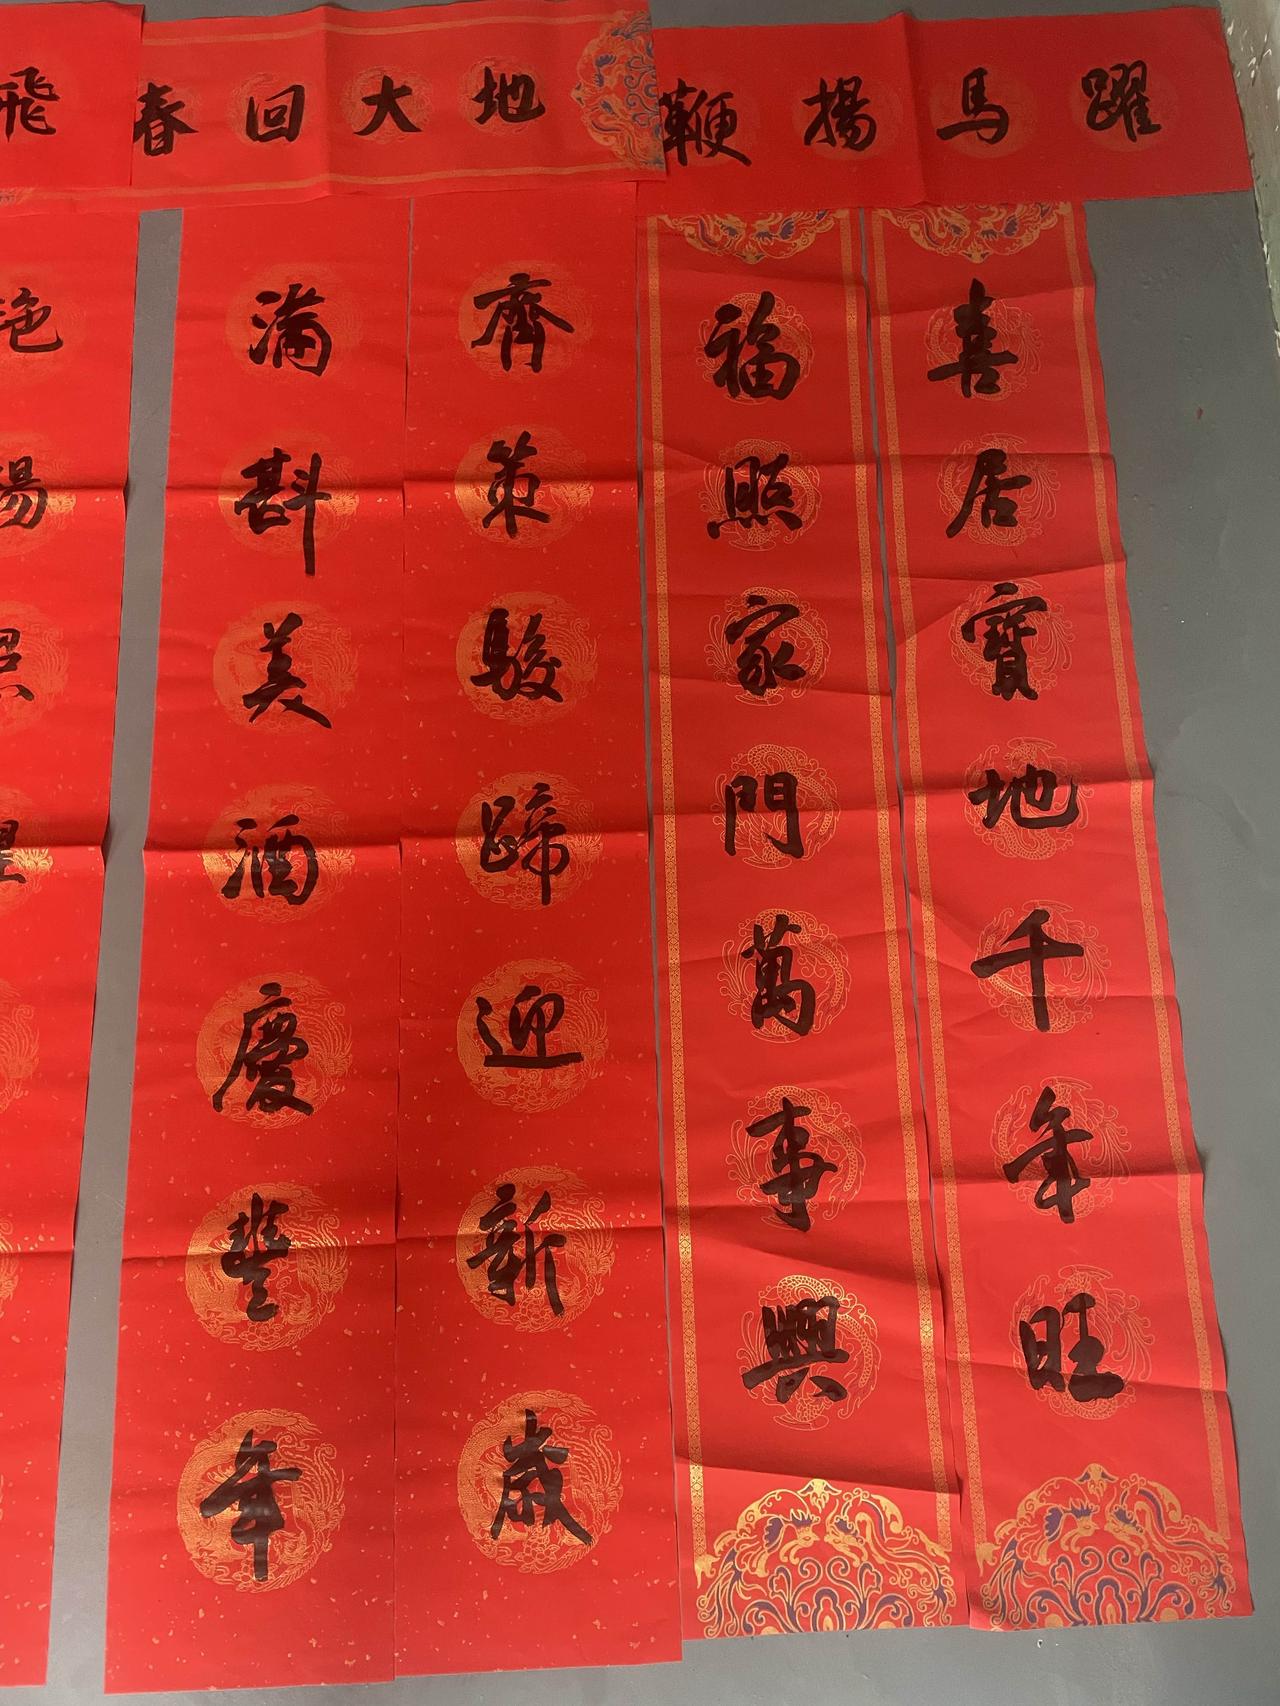 飛
春回大地
躍馬揚鞭
喜居寶地千年旺
福照家門萬事興
齊策駿蹄迎新歲
滿斟美酒慶豐年